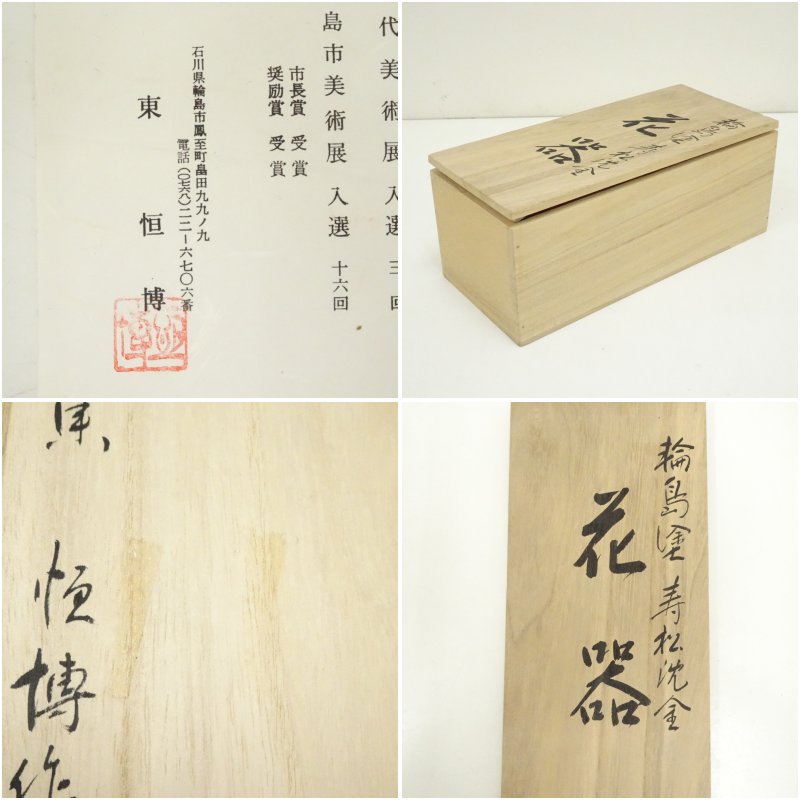 代美術展 入選 三回
島市美術展 入選 十六回
市長賞 受賞
奨励賞 受賞
石川県輪島市鳳至町畠田九九ノ九
電話(〇七六八)二二ー六七〇六番
東 恒 博
輪島塗 寿松沈金
花器
恒博作
輪島塗 寿松沈金
花器